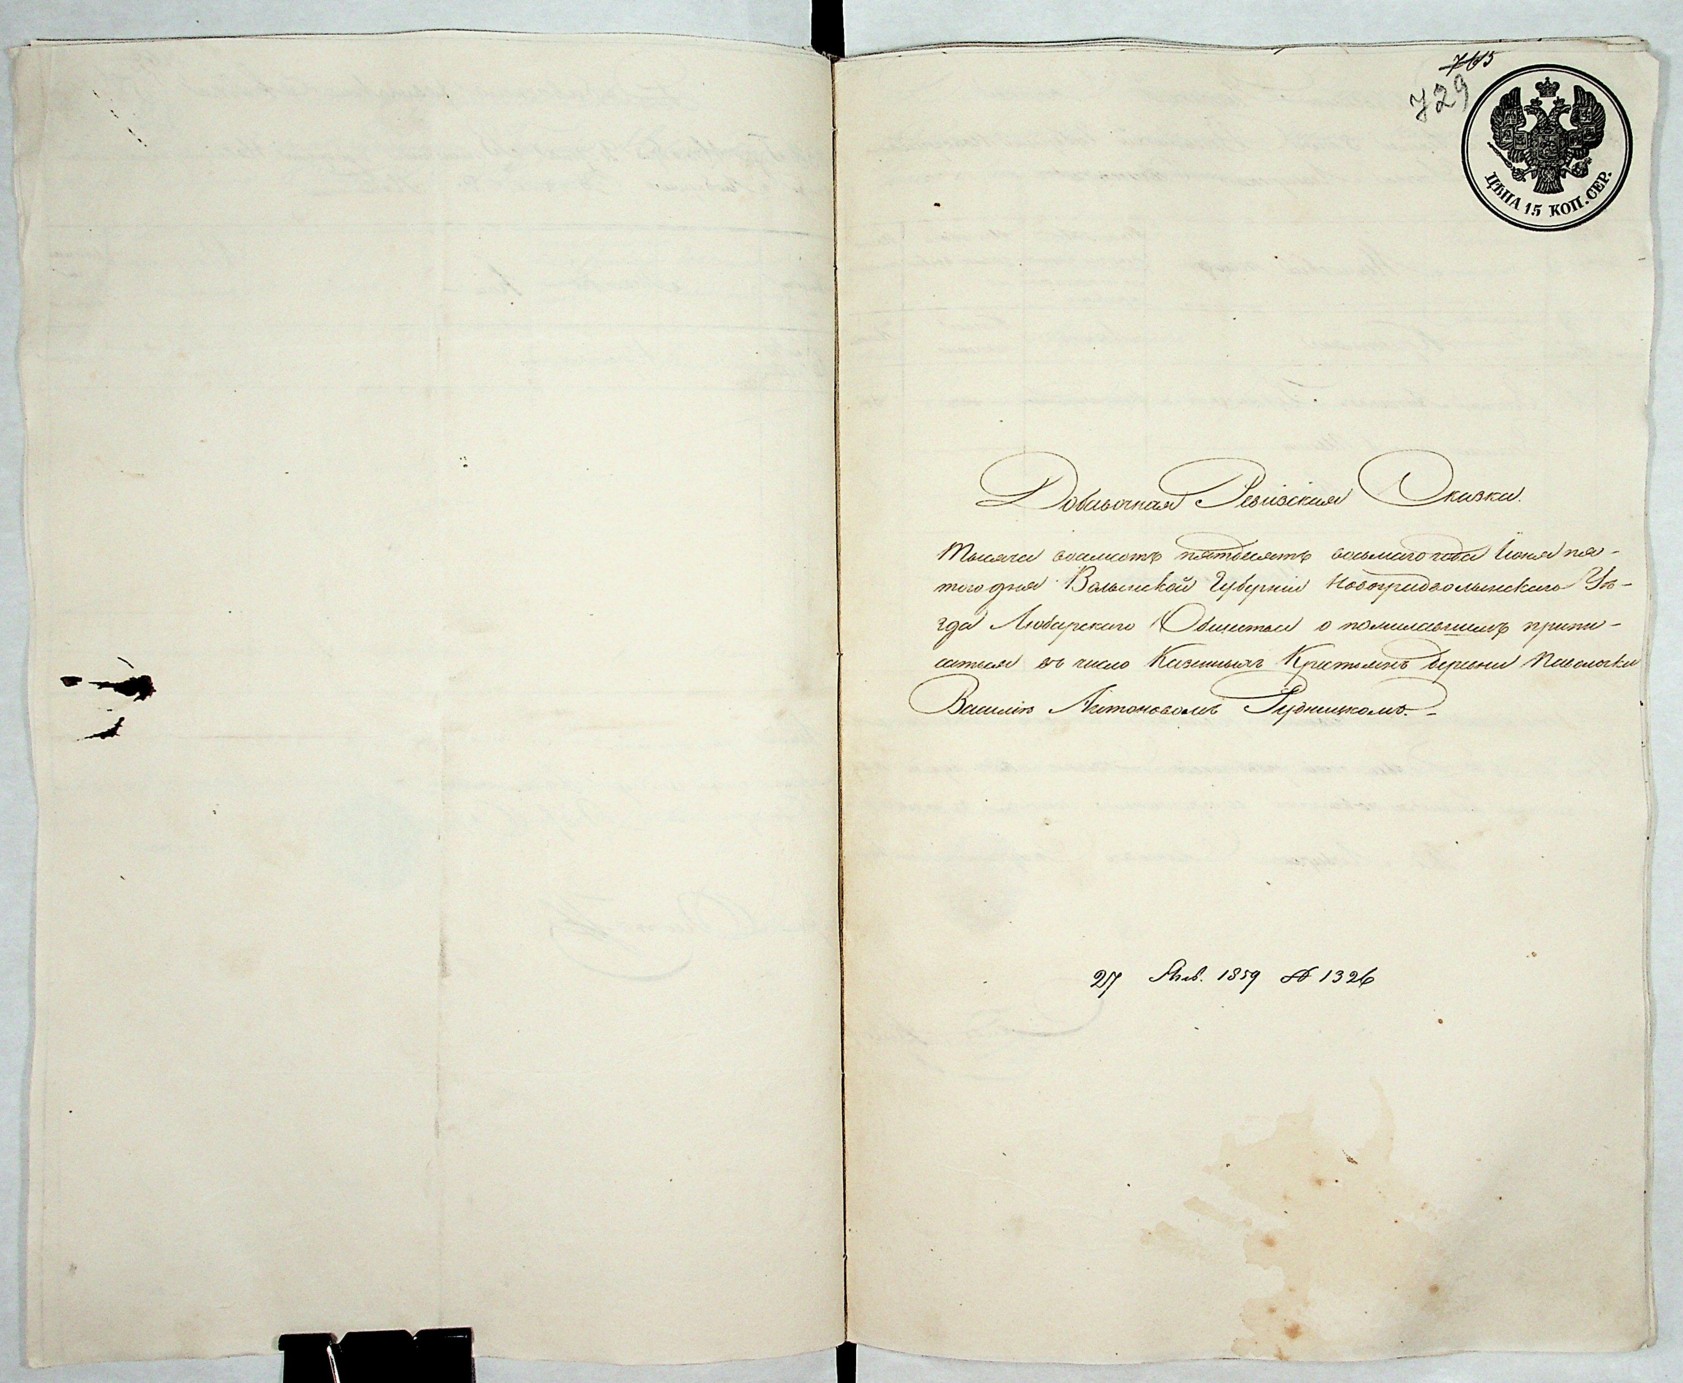 765
729
ЦѢНА 15 КОП. СЕР.
Добавочная Ревизская Сказка.
Тысяча восемсотъ пятдесятъ восьмаго года Іюня пя-
таго дня Волынской Губерніи Новоградволынскаго Уѣ-
зда Любарскаго Общества о пожелавшемъ припи-
саться въ число Казенныхъ Крестьянъ деревни Паволочки
Василію Антоновомъ Рудницкомъ.-
27 Янв. 1859 № 1326